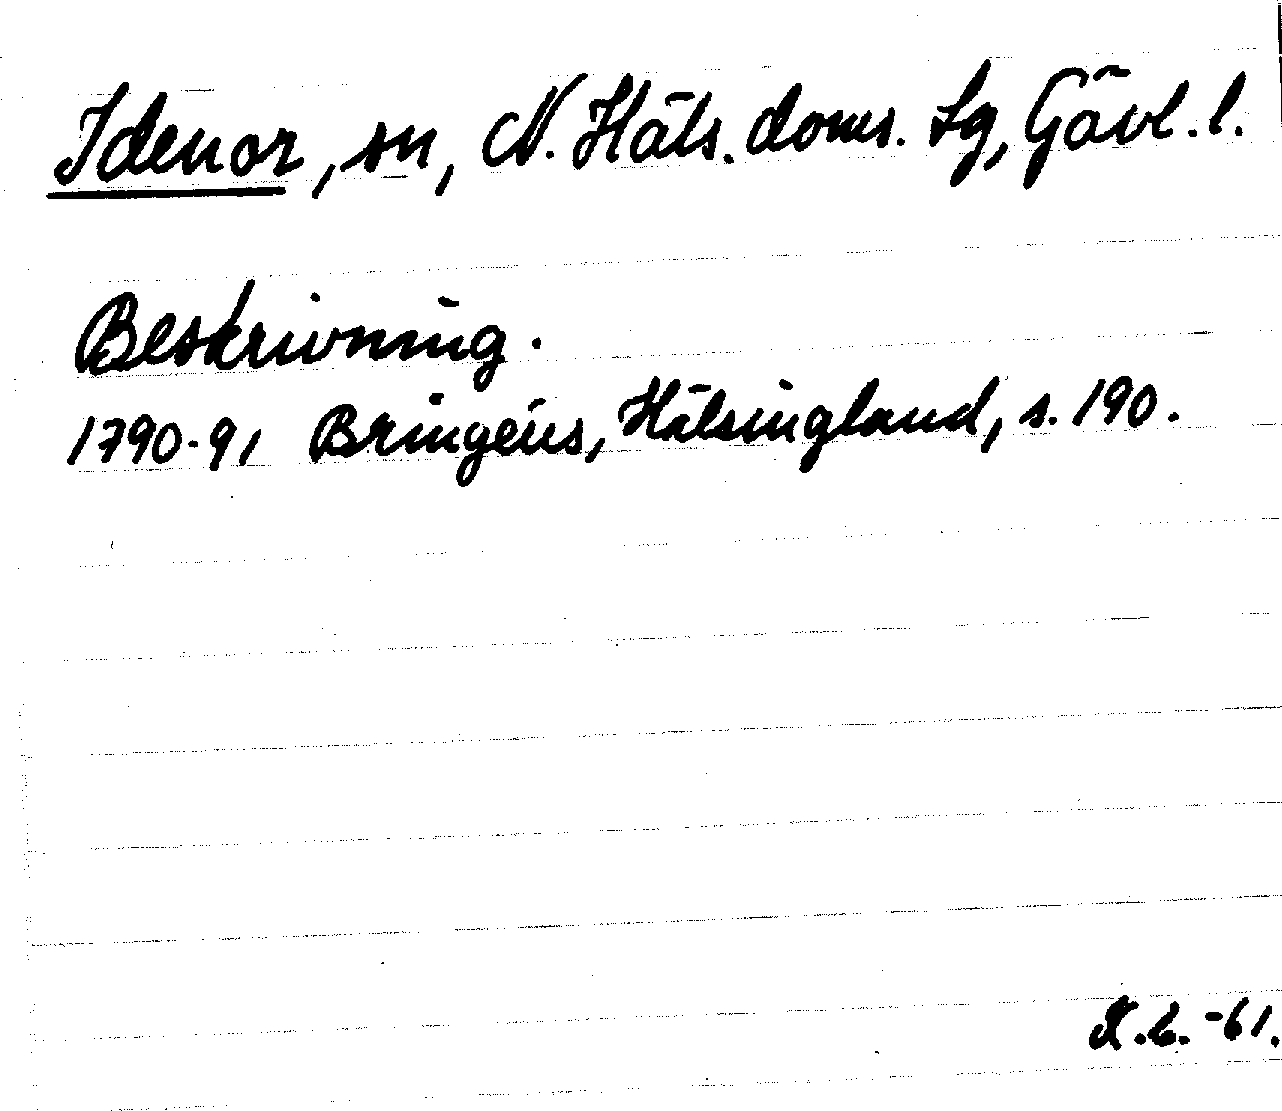 Idenor, sn, N. Häls. doms. Lg, Gävl. l.
Beskrivning.
1790-91 Bringéus, Hälsingland, s. 190.
-61.